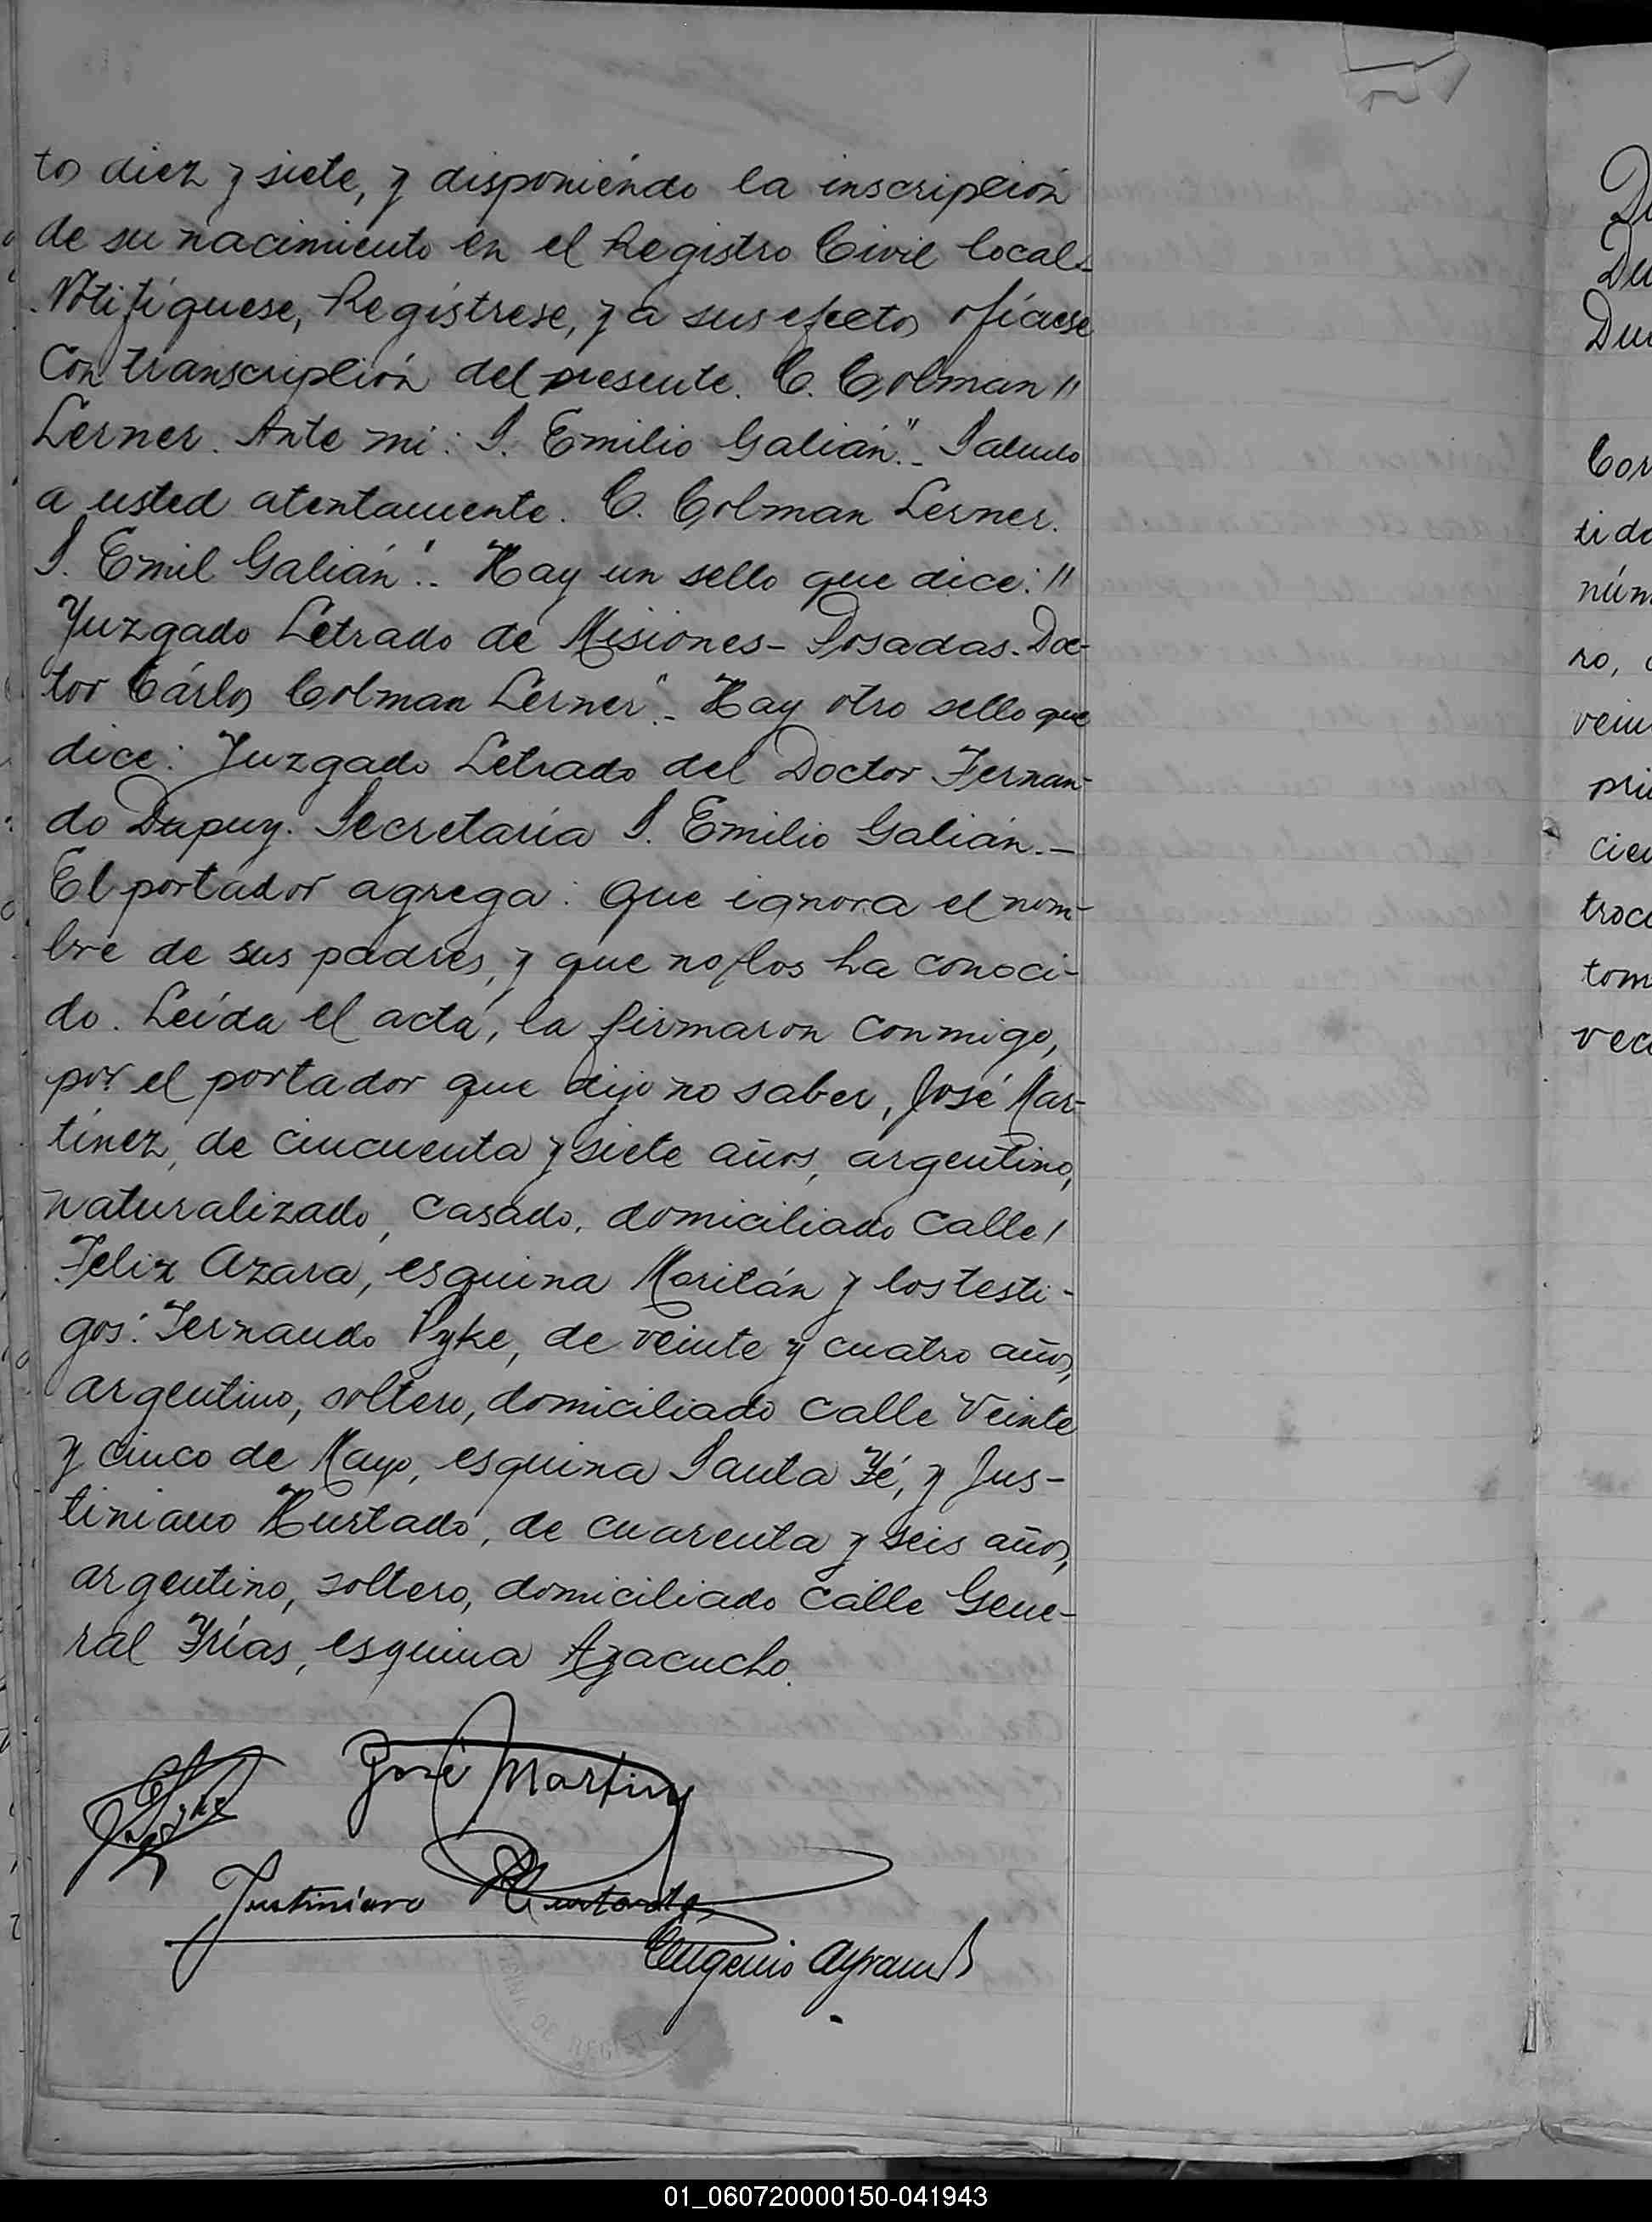 to diez y siete, y disponiéndo la inscripción
de su nacimiento en el Registro Civil local.-
Notifíquese, Regístrese, y a sus efectos ofíciese
con transcripción del presente. C. Colman "
Lerner. Ante mi: S. Emilio Galián".- Saludo
a usted atentamente. C. Colman Lerner.
S. Emil Galián".- Hay un sello que dice: "
Juzgado Letrado de Misiones- Posadas. Doc-
tor Cárlos Colman Lerner".- Hay otro sello que
dice: Juzgado Letrado del Doctor Fernan-
do Dupuy. Secretaría S. Emilio Galián.-
El portador agrega: que ignora el nom-
bre de sus padres, y que no los ha conoci-
do. Leída el acta, la firmaron conmigo,
por el portador que dijo no saber, José Mar-
tínez, de cincuenta y siete años, argentino,
naturalizado, casado, domiciliado calle
Felix Azara, esquina Moritán y los testi-
gos: Fernando Pyke, de veinte y cuatro años,
argentino, soltero, domiciliado calle Veinte
y cinco de Mayo, esquina Santa Fé, y Jus-
tiniano Hurtado, de cuarenta y seis años,
argentino, soltero, domiciliado calle Gene-
ral Frías, esquina Ayacucho.
José Martinez
Pyke
Justiniano Hurtado
Eugenio
DE REGIST
Du
Du
Du
Cor
tida
núm
ro,
vein
pri
cien
troc
tom
vec
01_060720000150-041943